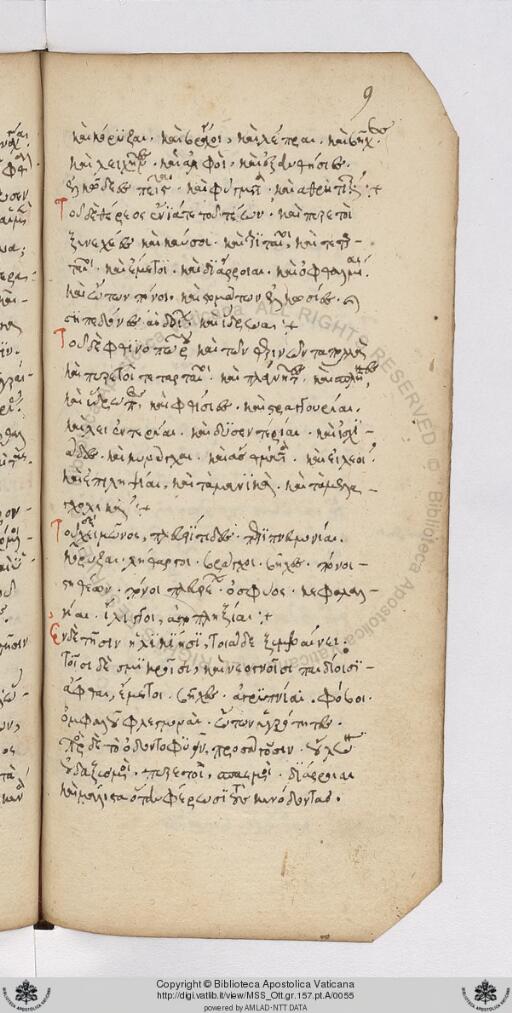 9
καὶ κόρυζαι. καὶ βράγχοι, καὶ λέπραι. καὶ βῆχες
καὶ λειχῆνες. καὶ ἀλφοὶ. καὶ ἐξανθήσιες
ἑλκώδεες πλεῖσται. καὶ φύματα, καὶ ἀρθριτικά :+
Τοῦ δὲ θέρεος ἔνιά τε τουτέων. καὶ πυρετοὶ
ξυνεχέες καὶ καῦσοι. καὶ τριταῖοι, καὶ τεταρ-
ταῖοι. καὶ ἔμετοι. καὶ διάρροιαι. καὶ ὀφθαλμίαι.
καὶ ὤτων πόνοι. καὶ στομάτων ἑλκώσιες. καὶ
σηπεδόνες αἰδοίων. καὶ ἵδρωα :+
Τοῦ δὲ φθινοπώρου καὶ τῶν θερινῶν τὰ πολλὰ
καὶ πυρετοὶ τεταρταῖοι. καὶ πλάνητες. καὶ σπλῆνες,
καὶ ὕδρωπες, καὶ φθίσιες. καὶ στραγγουρίαι.
καὶ λειεντερίαι. καὶ δυσεντερίαι. καὶ ἰσχι-
άδες. καὶ κυνάγχαι. καὶ ἄσθματα. καὶ εἰλεοί.
καὶ ἐπιληψίαι, καὶ τὰ μανικὰ. καὶ τὰ μελαγ-
χολικά :+
Τοῦ δὲ χειμῶνος, πλευρίτιδες. περιπνευμονίαι.
κόρυζαι. λήθαργοι. βράγχοι. βῆχες. πόνοι
στηθέων. πόνοι πλευρέων. ὀσφύος. κεφαλαλ-
γίαι. ἴλιγγοι, ἀποπληξίαι :+
Ἐν δὲ τῇσιν ἡλικίῃσι, τοιάδε ξυμβαίνει.
τοῖσι δὲ σμικροῖσι, καὶ νεογνοῖσι παιδίοισι
ἄφθαι, ἔμετοι. βῆχες. ἀγρυπνίαι. φόβοι.
ὀμφαλοῦ φλεγμοναὶ. ὤτων ὑγρότητες.
πρὸς δὲ τὸ ὀδοντοφυεῖν, προσάγουσιν. οὔλων
ὀδαξισμοί. πυρετοὶ, σπασμοὶ. διάρροιαι
καὶ μάλιστα ὅταν φέρωσι τοὺς κυνόδοντας.
Copyright © Biblioteca Apostolica Vaticana
http://digi.vatlib.it/view/MSS_Ott.gr.157.pt.A/0055
powered by AMLAD-NTT DATA